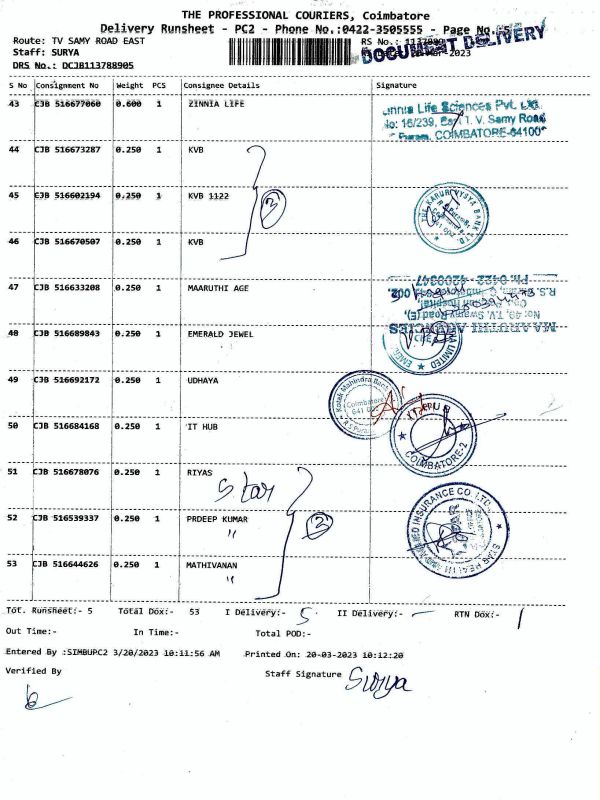 THE PROFESSIONAL COURIERS, Coimbatore
Delivery Runsheet - PC2 - Phone No.:0422-3505555 - Page No.
Route: TV SAMY ROAD EAST
Staff: SURYA
DRS No.: DCJB113788905
DOCUMENT DELIVERY
S No Consignment No Weight PCS Consignee Details Signature
43 CJB 516677060 0.600 1 ZINNIA LIFE
Zinnia Life Sciences Pvt. Ltd.
No: 16/239, East T. V. Samy Road
COIMBATORE-641002
44 CJB 516673287 0.250 1 KVB
45 CJB 516602194 0.250 1 KVB 1122
3
THE KARUR VYSYA BANK LTD.
46 CJB 516670507 0.250 1 KVB
47 CJB 516633208 0.250 1 MAARUTHI AGE
MAARUTHI AGENCIES
No: 49, T.V. Swamy Road (E),
48 CJB 516689843 0.250 1 EMERALD JEWEL
49 CJB 516692172 0.250 1 UDHAYA
Kotak Mahindra Bank
Coimbatore
50 CJB 516684168 0.250 1 IT HUB
IT HUB
COIMBATORE-2
51 CJB 516678076 0.250 1 RIYAS
Star
52 CJB 516539337 0.250 1 PRDEEP KUMAR
"
3
INSURANCE CO. LTD.
STAR HEALTH
53 CJB 516644626 0.250 1 MATHIVANAN
"
Tot. Runsheet:- 5 Total Dox:- 53 I Delivery:- 5 II Delivery:- — RTN Dox:- 1
Out Time:- In Time:- Total POD:-
Entered By :SIMBUPC2 3/20/2023 10:11:56 AM Printed On: 20-03-2023 10:12:20
Verified By Staff Signature Surya